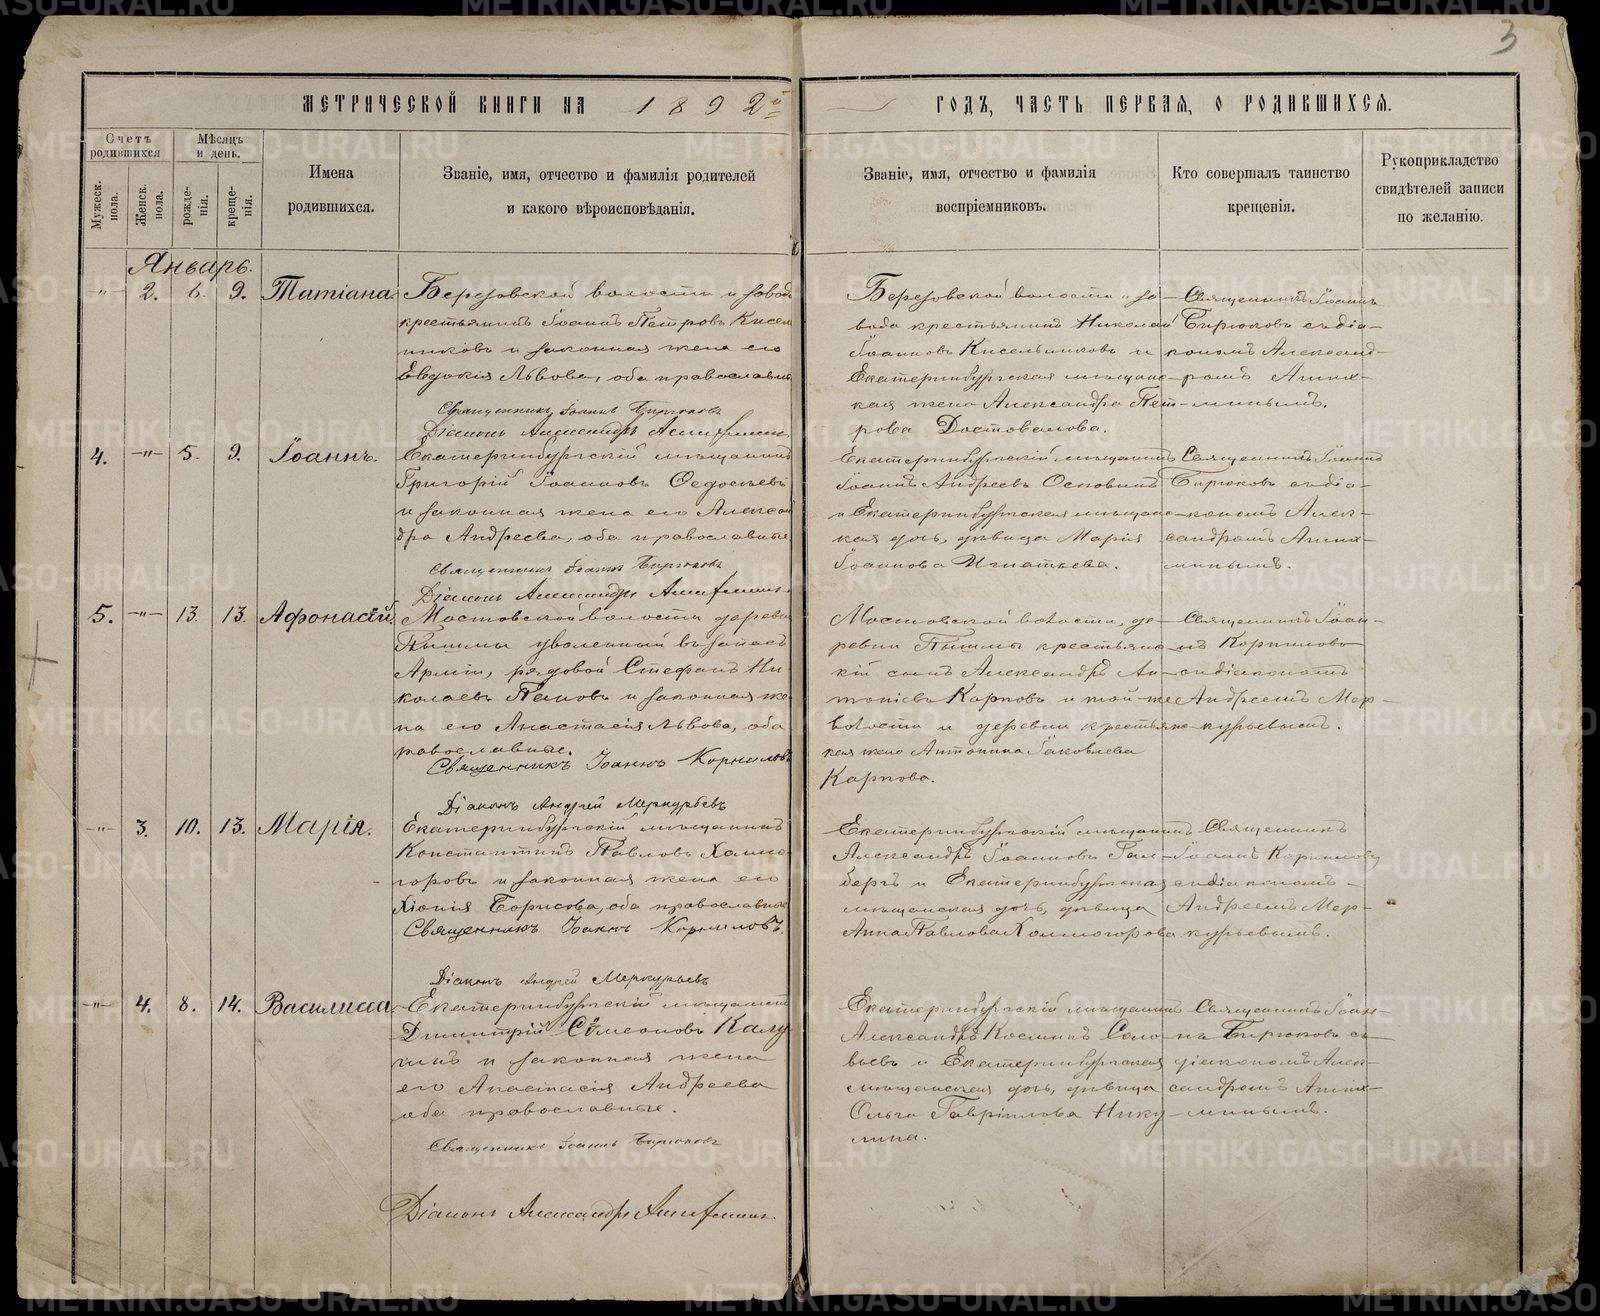 3
МЕТРИЧЕСКОЙ КНИГИ НА 1892й ГОДЪ, ЧАСТЬ ПЕРВАЯ, О РОДИВШИХСЯ.
Счетъ родившихся
Мѣсяцъ и день.
Мужеск. пола.
Женск. пола.
рожде-нія.
креще-нія.
Имена
родившихся.
Званіе, имя, отчество и фамилія родителей
и какого вѣроисповѣданія.
Званіе, имя, отчество и фамилія
воспріемниковъ.
Кто совершалъ таинство
крещенія.
Рукоприкладство
свидѣтелей записи
по желанію.
Январь.
-"- 2. 6. 9. Татіана.
Березовской волости и завода
крестьянинъ Іоаннъ Петровъ Кисель
никовъ и законная жена его
Евдокія Львова, оба православные
Священникъ Іоаннъ Бирюковъ
Діаконъ Александръ
Березовской волости и за-
вода крестьянинъ Николай
Іоанновъ Кисельниковъ и
Екатеринбургская мѣщанс-
кая жена Александра Пет-
рова Достовалова.
Священникъ Іоаннъ
Бирюковъ съ діа-
кономъ Александ-
ромъ
миномъ.
4. -"- 5. 9. Іоаннъ.
Екатеринбургскій мѣщанинъ
Григорій Іоанновъ Федосѣевъ
и законная жена его Алексан
дра Андреева, оба православные
Священникъ Іоаннъ Бирюковъ
Діаконъ Александръ
Екатеринбургскій мѣщанинъ
Іоаннъ Андреевъ
и Екатеринбургская мѣщанс-
кая дочь, дѣвица Марія
Іоаннова Игнатьева.
Священникъ Іоаннъ
Бирюковъ съ діа-
кономъ Алек-
сандромъ
5. -"- 13. 13. Афонасій.
Мостовской волости деревни
Пышмы уволенный въ запасъ
Арміи, рядовой Стефанъ Ни-
колаевъ Пановъ и законная же-
на его Анастасія Львова, оба
равославные.
Священникъ Іоаннъ Корниловъ
Діаконъ Андрей Меркурьевъ
Мостовской волости, де-
ревни Пышмы крестьянс-
кій сынъ Александръ Ан-
тоніевъ Карповъ и той-же
волости и деревни крестьянс-
кая жена Антонина Іаковлева
Карпова.
Священникъ Іоан-
нъ Корниловъ
съ діакономъ
Андреемъ Мер-
курьевымъ.
-"- 3. 10. 13. Марія.
Екатеринбургскій мѣщанинъ
Константинъ Павловъ Холмо-
горовъ и законная жена его
Хіонія Борисова, оба православные
Священникъ Іоаннъ Корниловъ.
Діаконъ Андрей Меркурьевъ
Екатеринбургскій мѣщанинъ
Александръ Іоанновъ Гал-
бергъ и Екатеринбургская
мѣщанская дочь, дѣвица
Анна Павлова Холмогорова
Священникъ
Іоаннъ Корниловъ
съ діакономъ
Андреемъ Мер-
курьевымъ.
-"- 4. 8. 14. Василисса
Екатеринбургскій мѣщанинъ
Димитрій Сѵмеоновъ Калу
гинъ и законная жена
его Анастасія Андреева
оба православные.
Священникъ Іоаннъ Бирюковъ
Діаконъ Александръ
Екатеринбургскій мѣщанинъ
Александръ Косминъ Соло-
вьевъ и Екатеринбургская
мѣщанская дочь, дѣвица
Ольга Гавріилова Нику
лина.
Священникъ Іоан-
нъ Бирюковъ съ
діакономъ Алек-
сандромъ
METRIKI.GASO-URAL.RU